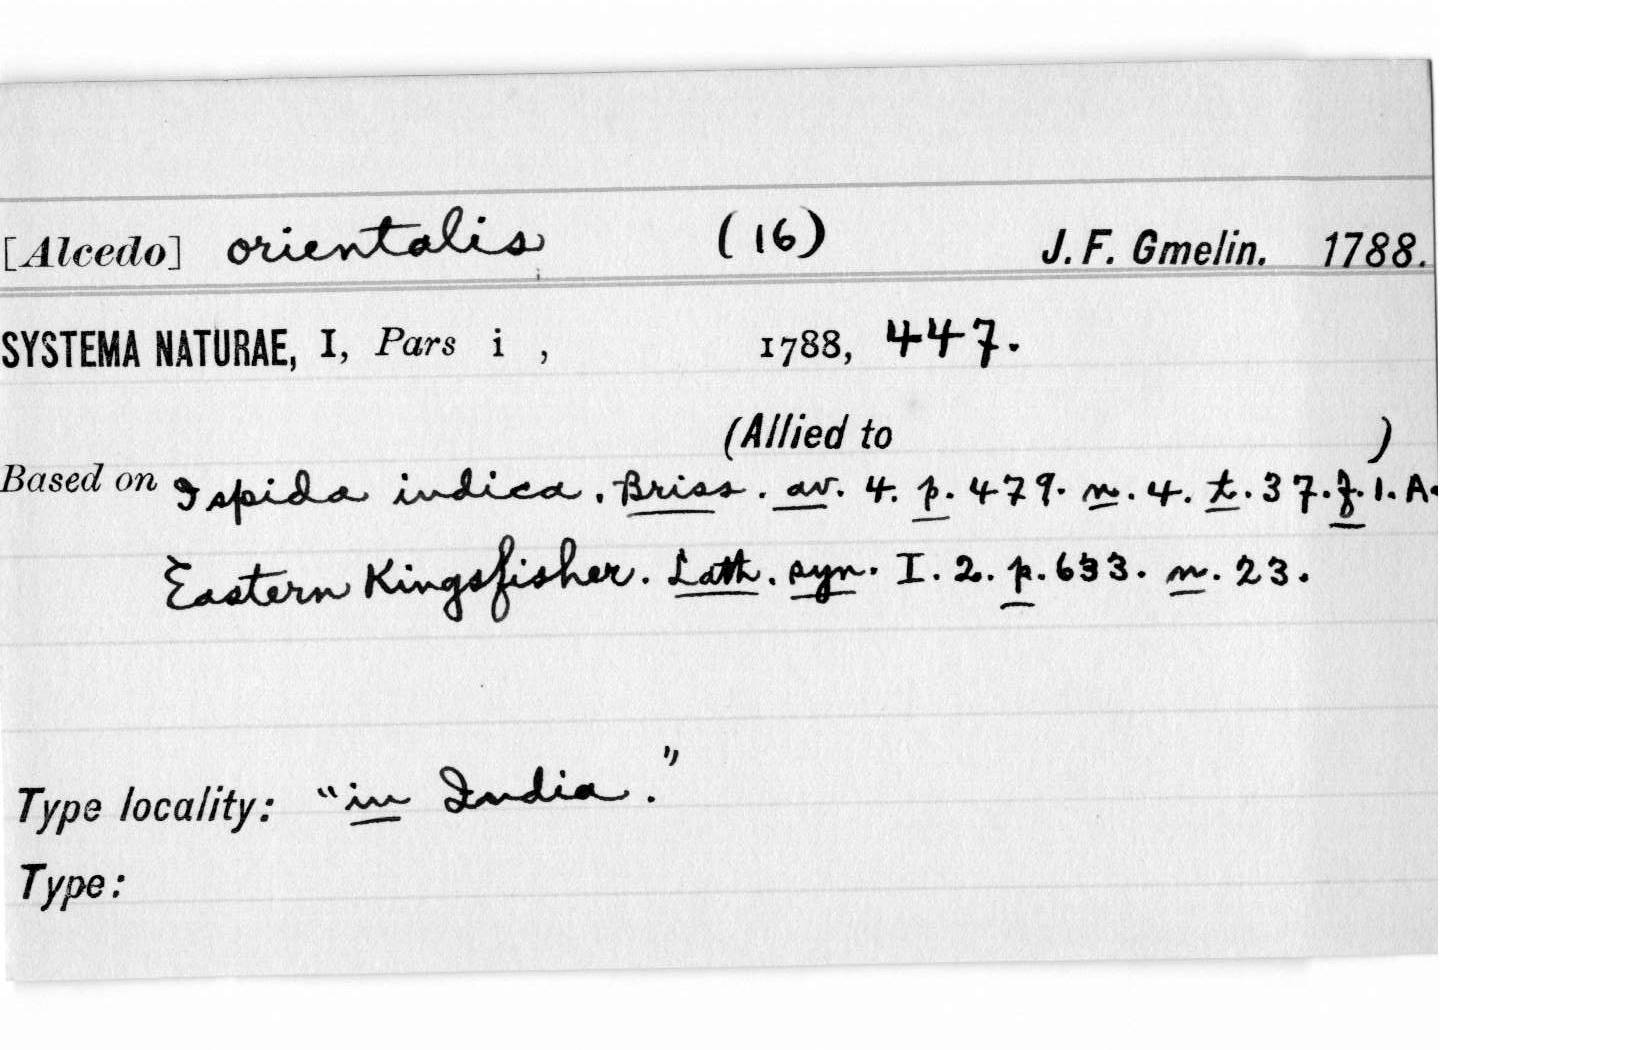 [Alcedo] orientalis (16) J. F. Gmelin. 1788.
SYSTEMA NATURAE, I, Pars i , 1788, 447.
(Allied to )
Based on Ispida indica. Briss. av. 4. p. 479. n. 4. t. 37. f. 1. A.
Eastern Kingsfisher. Lath. syn. I. 2. p. 633. n. 23.
Type locality: "in India."
Type: